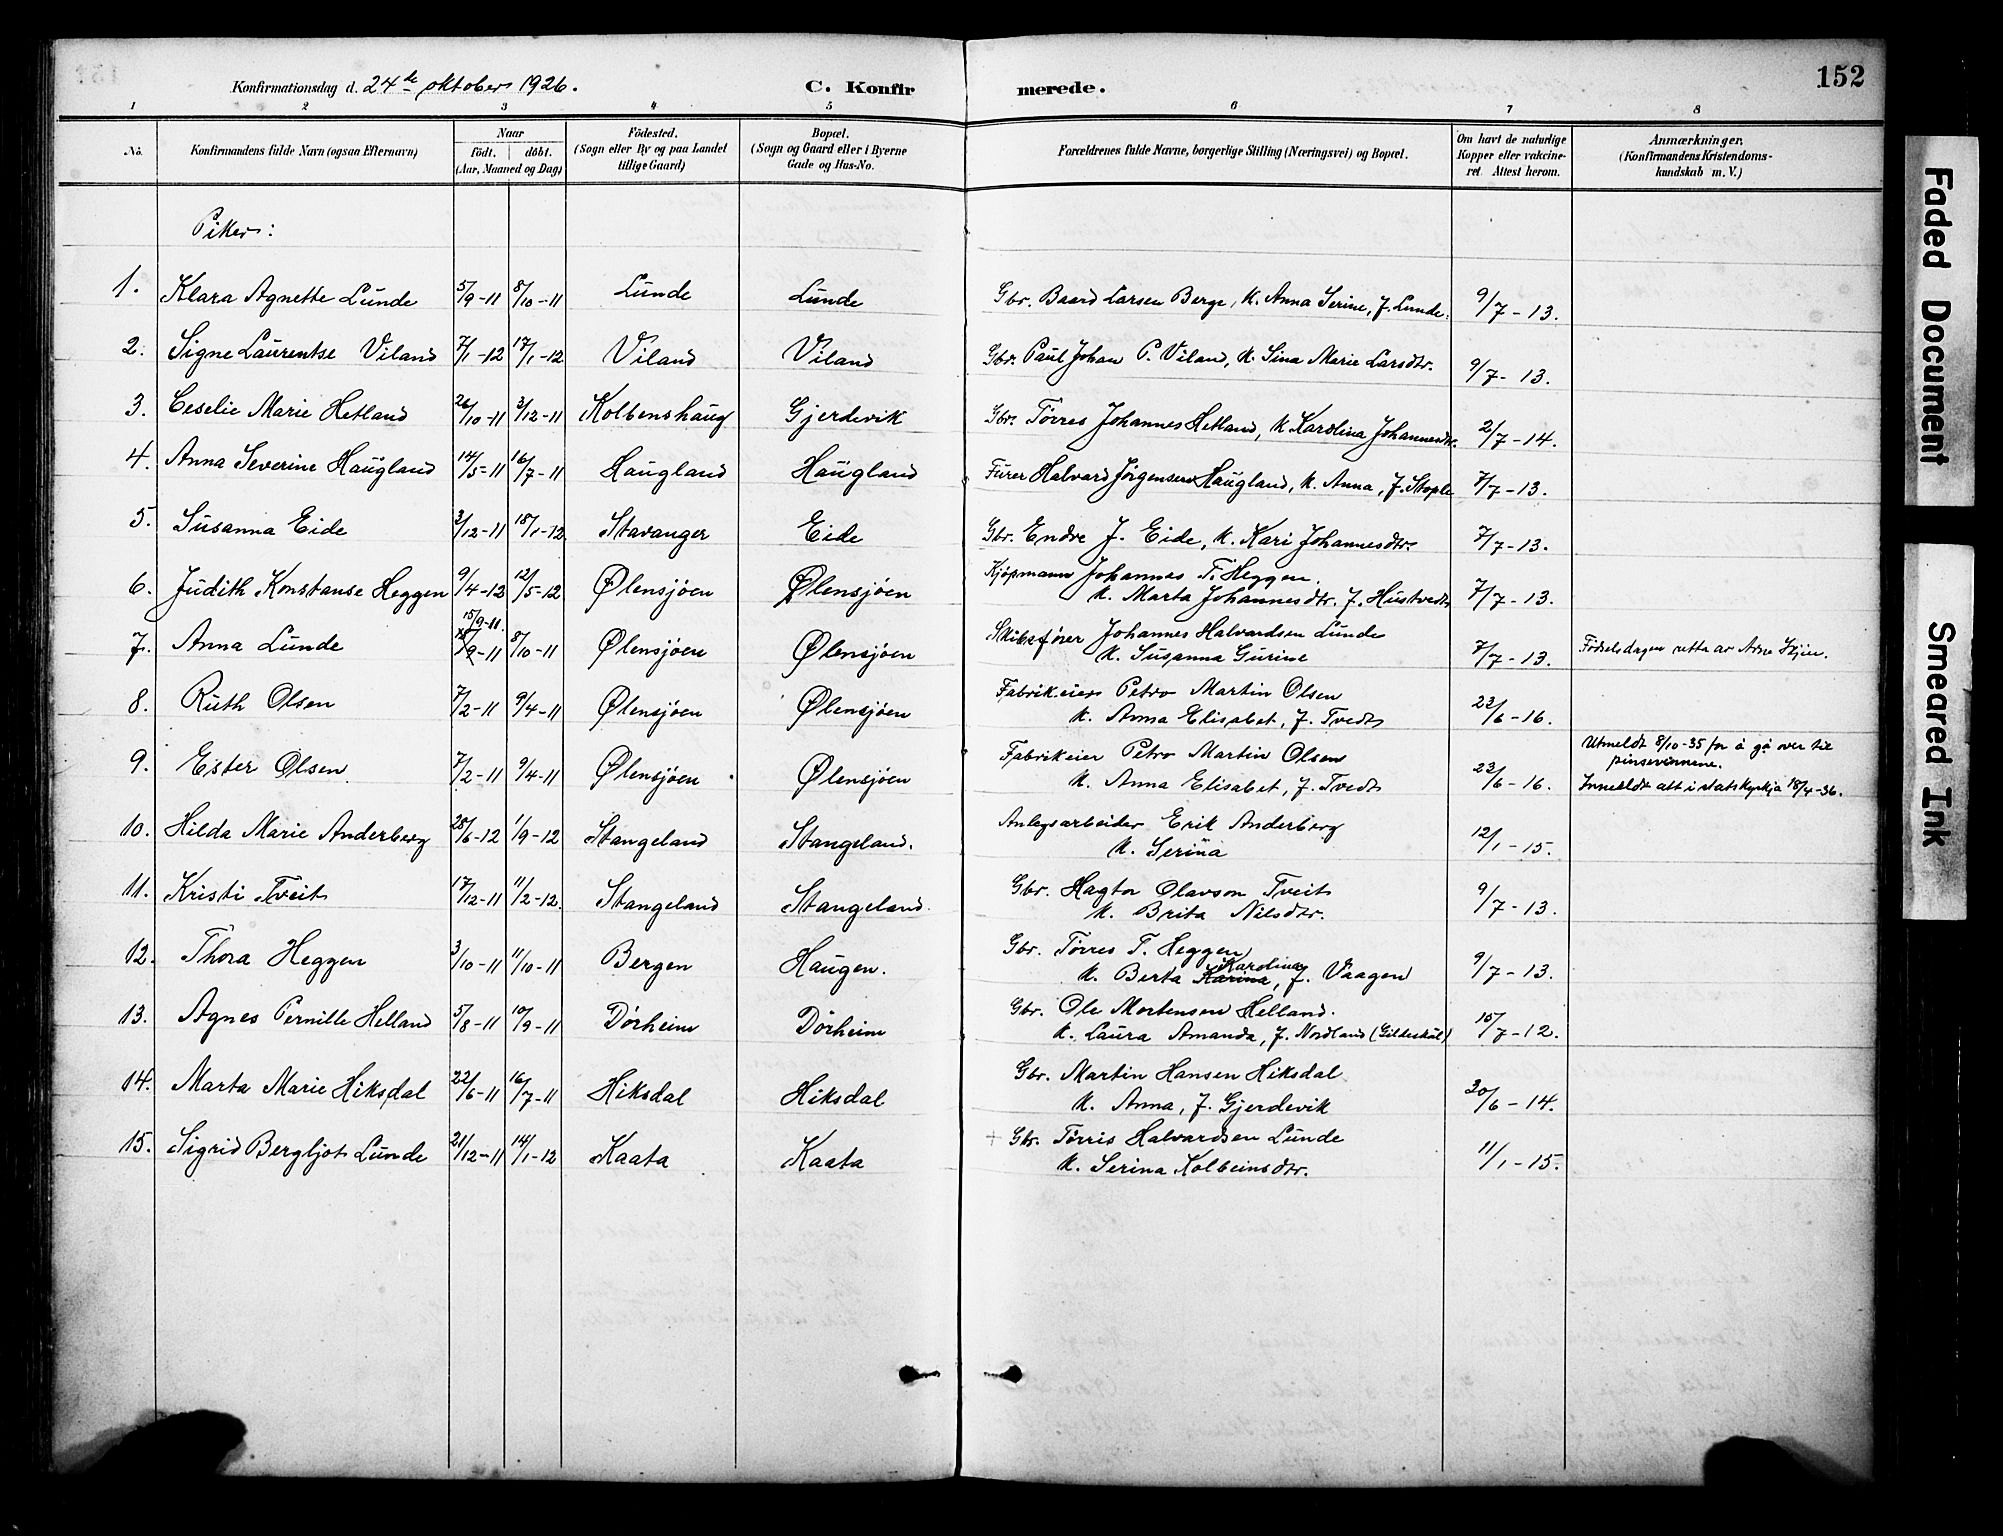 152
Konfirmationsdag d. 24de oktober 1926.
C. Konfirmerede.
1 2 3 4 5 6 7 8
No. Konfirmandens fulde Navn (ogsaa Efternavn) Naar födt. döbt. (Aar, Maaned og Dag) Födested. (Sogn eller By og paa Landet tillige Gaard) Bopæl. (Sogn og Gaard eller i Byerne Gade og Hus-No. Forældrenes fulde Navne, borgerlige Stilling (Næringsvei) og Bopæl. Om havt de naturlige Kopper eller vakcineret. Attest herom. Anmærkninger. (Konfirmandens Kristendomskundskab m. V.)
Piker:
1. Klara Agnette Lunde 5/9-11 8/10-11 Lunde Lunde Gbr. Baard Larsen Berge, k. Anna Serine, f. Lunde. 9/7-13.
2. Signe Laurentse Viland 7/1-12 17/1-12 Viland Viland Gbr. Paul Johan P. Viland, k. Sina Marie Larsdtr. 9/7-13.
3. Ceselie Marie Hetland 26/10-11 3/12-11 Kolbenshaug Gjerdevik Gbr. Tørres Johannes Hetland, k Karolina Johannesdtr. 2/7-14.
4. Anna Severine Haugland 14/5-11 16/7-11 Haugland Haugland Furer Halvard Jørgensen Haugland, k. Anna, f. Stople 7/7-13.
5. Susanna Eide 3/12-11 18/1-12 Stavanger Eide Gbr. Endre J. Eide, k. Kari Johannesdtr. 7/7-13.
6. Judith Konstanse Heggen 9/4-12 12/5-12 Ølensjøen Ølensjøen Kjøpmann Johannes T. Heggen.
k. Marta Johannesdtr. f. Hustvedt 7/7-13.
15/9-11.
7. Anna Lunde /9-11 8/10-11 Ølensjøen Ølensjøen Skibsfører Johannes Halvardsen Lunde
k. Susanna Gurine 7/7-13. Fødselsdagen retta av Arne
8. Ruth Olsen 7/2-11 9/4-11 Ølensjøen Ølensjøen Fabrikeier Petro Martin Olsen
k. Anna Elisabet, f. Tvedt 23/6-16.
9. Ester Olsen 7/2-11 9/4-11 Ølensjøen Ølensjøen Fabrikeier Petro Martin Olsen
k. Anna Elisabet, f. Tvedt 23/6-16.
Utmeldt 8/10-35 for å gå over til
pinsevinnene.
Innmeldt att i statskyrkja 18/4-36.
10. Hilda Marie Anderberg 28/6-12 1/9-12 Stangeland Stangeland. Anlegsarbeider Erik Anderberg
k. Serina 12/1-15.
11. Kristi Tveit 17/12-11 11/2-12. Stangeland Stangeland. Gbr. Hagtor Olavson Tveit
k. Brita Nilsdtr. 9/7-13.
12. Thora Heggen 3/10-11 11/10-11 Bergen Haugen. Gbr. Tørres T. Heggen
Karolina
k. Berta Karina, f. Vaagen 9/7-13.
13. Agnes Pernille Helland 5/8-11 10/9-11 Dørheim Dørheim Gbr. Ole Mortensen Helland.
k. Laura Amanda, f. Nordland (Gildeskål) 15/7-12.
14. Marta Marie Hiksdal 22/6-11 16/7-11 Hiksdal Hiksdal Gbr. Martin Hansen Hiksdal
k. Anna, f. Gjerdevik 20/6-14.
15. Sigrid Bergljot Lunde 21/12-11 14/1-12 Kaata Kaata + Gbr. Tørris Halvardsen Lunde
k. Serina Kolbeinsdtr. 11/1-15.
Faded Document
Smeared Ink